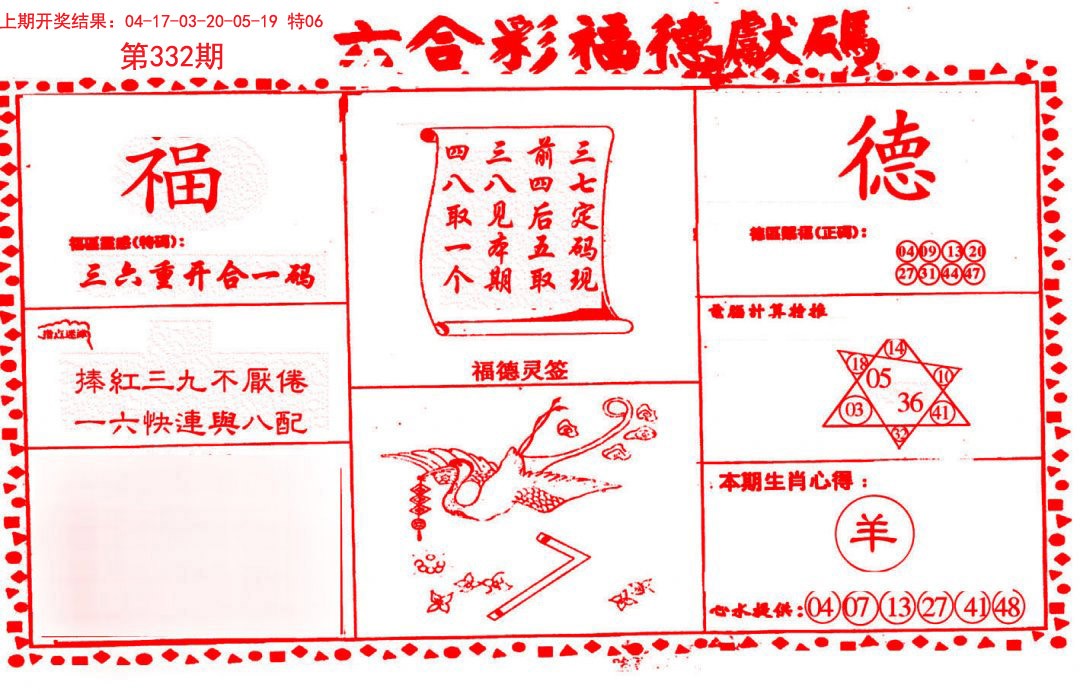 上期开奖结果：04-17-03-20-05-19 特06
第332期
六合彩福德獻碼
福
福區靈感(特码)：
三六重开合一码
指点迷津
捧紅三九不厭倦
一六快連與八配
三七定码现
前四后五取
三八见本期
四八取一个
福德灵签
德
德區賜福(正码)：
04 09 13 20
27 31 44 47
電腦計算精推
14
18 10
05
36
03 41
32
本期生肖心得：
羊
心水提供：04 07 13 27 41 48